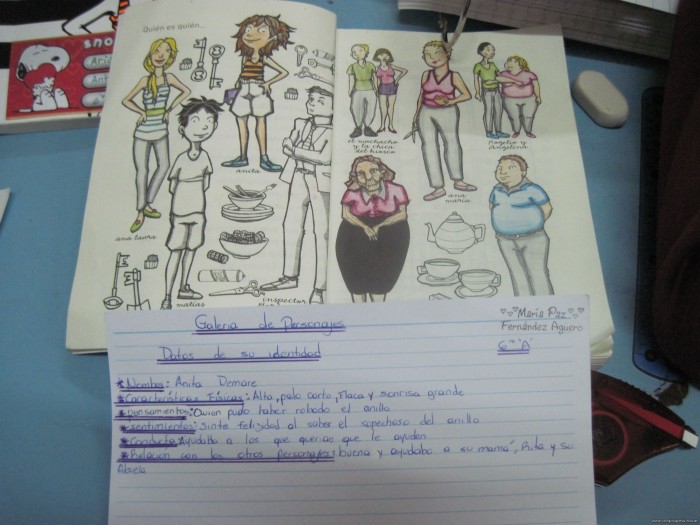 Quién es quién...
SNO
ana laura
matías
anita
inspector
el muchacho
y la chica
del kiosco
ana
maría
Rogelio y
Angelina
María Paz
Fernández Agüero
6to "A"
Galeria de Personajes
Datos de su identidad
*Nombre: Anita Demare
*Características Físicas: Alta, pelo corto, flaca y sonrisa grande
*pensamientos: Quien pudo haber robado el anillo
*sentimientos: Sinte felizidad al saber el sopechoso del anillo
*Conducta: Ayudaba a los que querian que le ayuden
*Relación con los otros personajes: buena y ayudaba a su mamá, Rita y su
Abuela